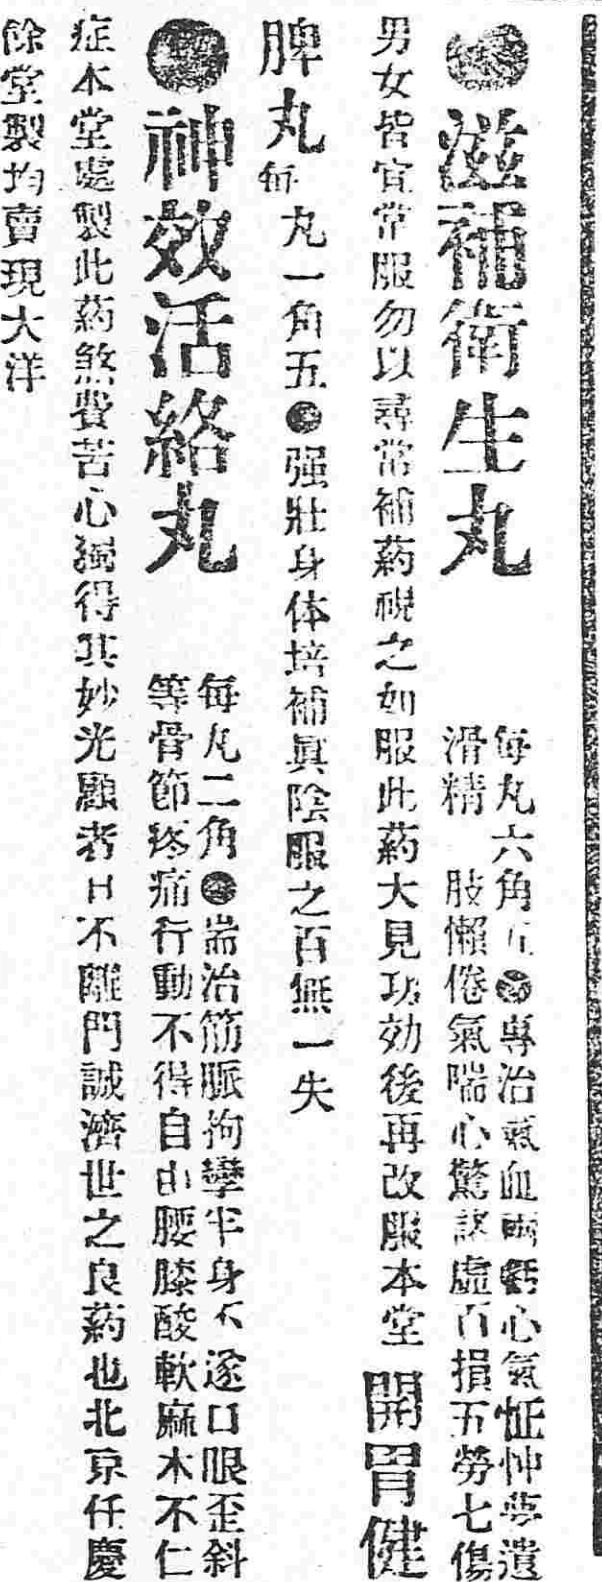 滋補衛生丸
每丸六角五 專治氣血兩虧心氣怔忡夢遺
滑精 肢懶倦氣喘心驚諸虛百損五勞七傷
男女皆宜常服勿以尋常補葯視之如服此葯大見功効後再改服本堂開胃健
脾丸每 丸一角五 强壯身体培補眞陰服之百無一失
神效活絡丸
每丸二角 耑治筋脈拘攣半身不遂口眼歪斜
等骨節疼痛行動不得自由腰膝酸軟麻木不仁
症本堂處製此葯煞費苦心獨得其妙光顧者日不離門誠濟世之良葯也北京仼慶
餘堂製均賣現大洋